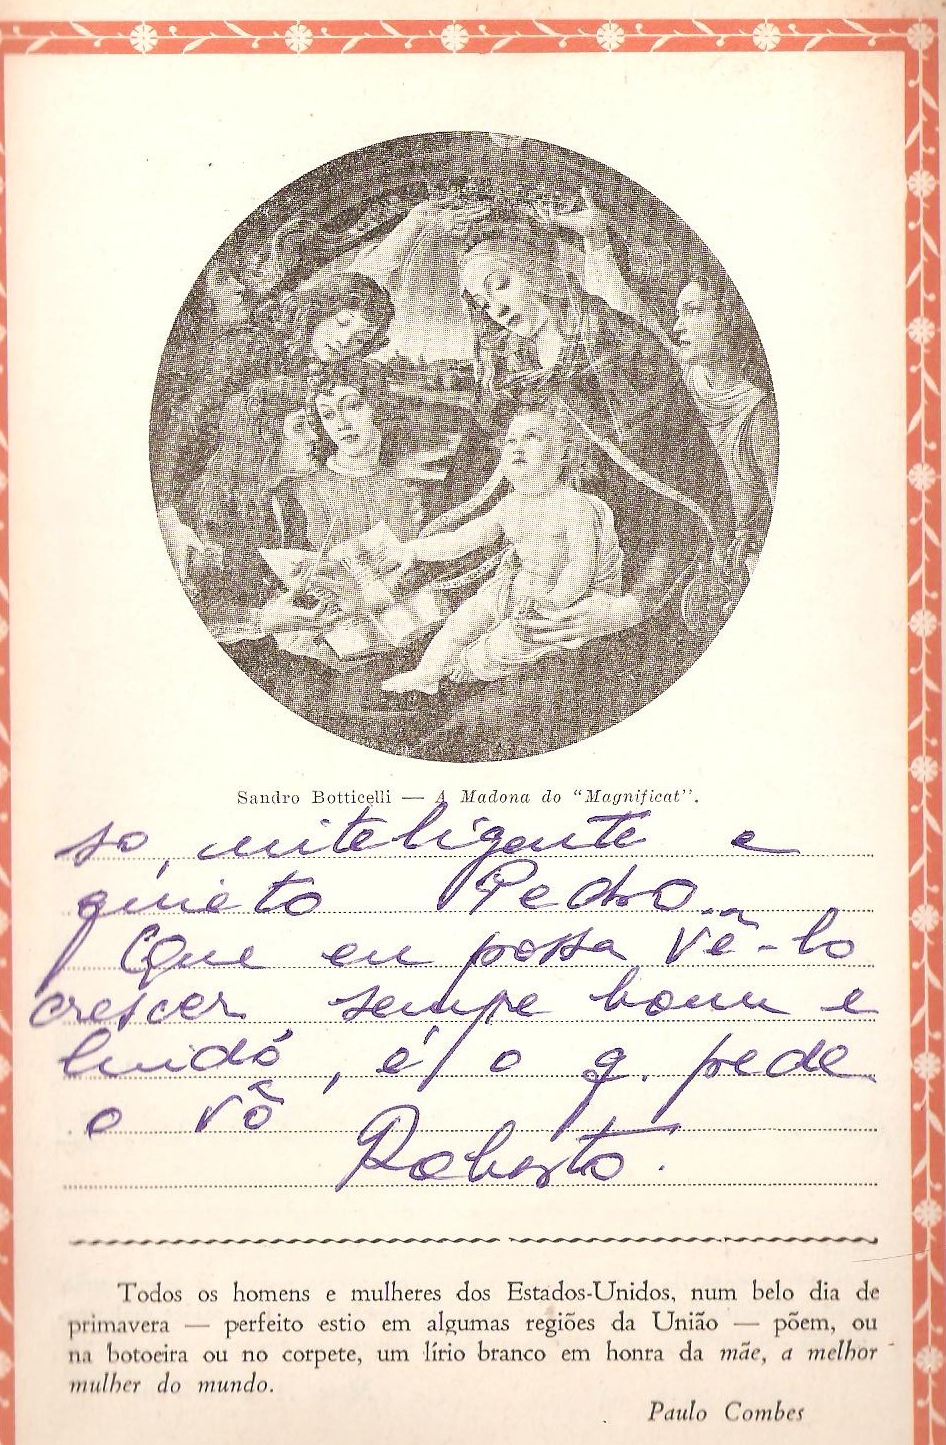 Sandro Botticelli — A Madona do "Magnificat".
so, inteligente e
quieto Pedro.
Que eu possa vê-lo
crescer sempre bom e
lindo, é o q. pede
o vô
Roberto.
Todos os homens e mulheres dos Estados-Unidos, num belo dia de
primavera — perfeito estio em algumas regiões da União — põem, ou
na botoeira ou no corpete, um lírio branco em honra da mãe, a melhor
mulher do mundo.
Paulo Combes